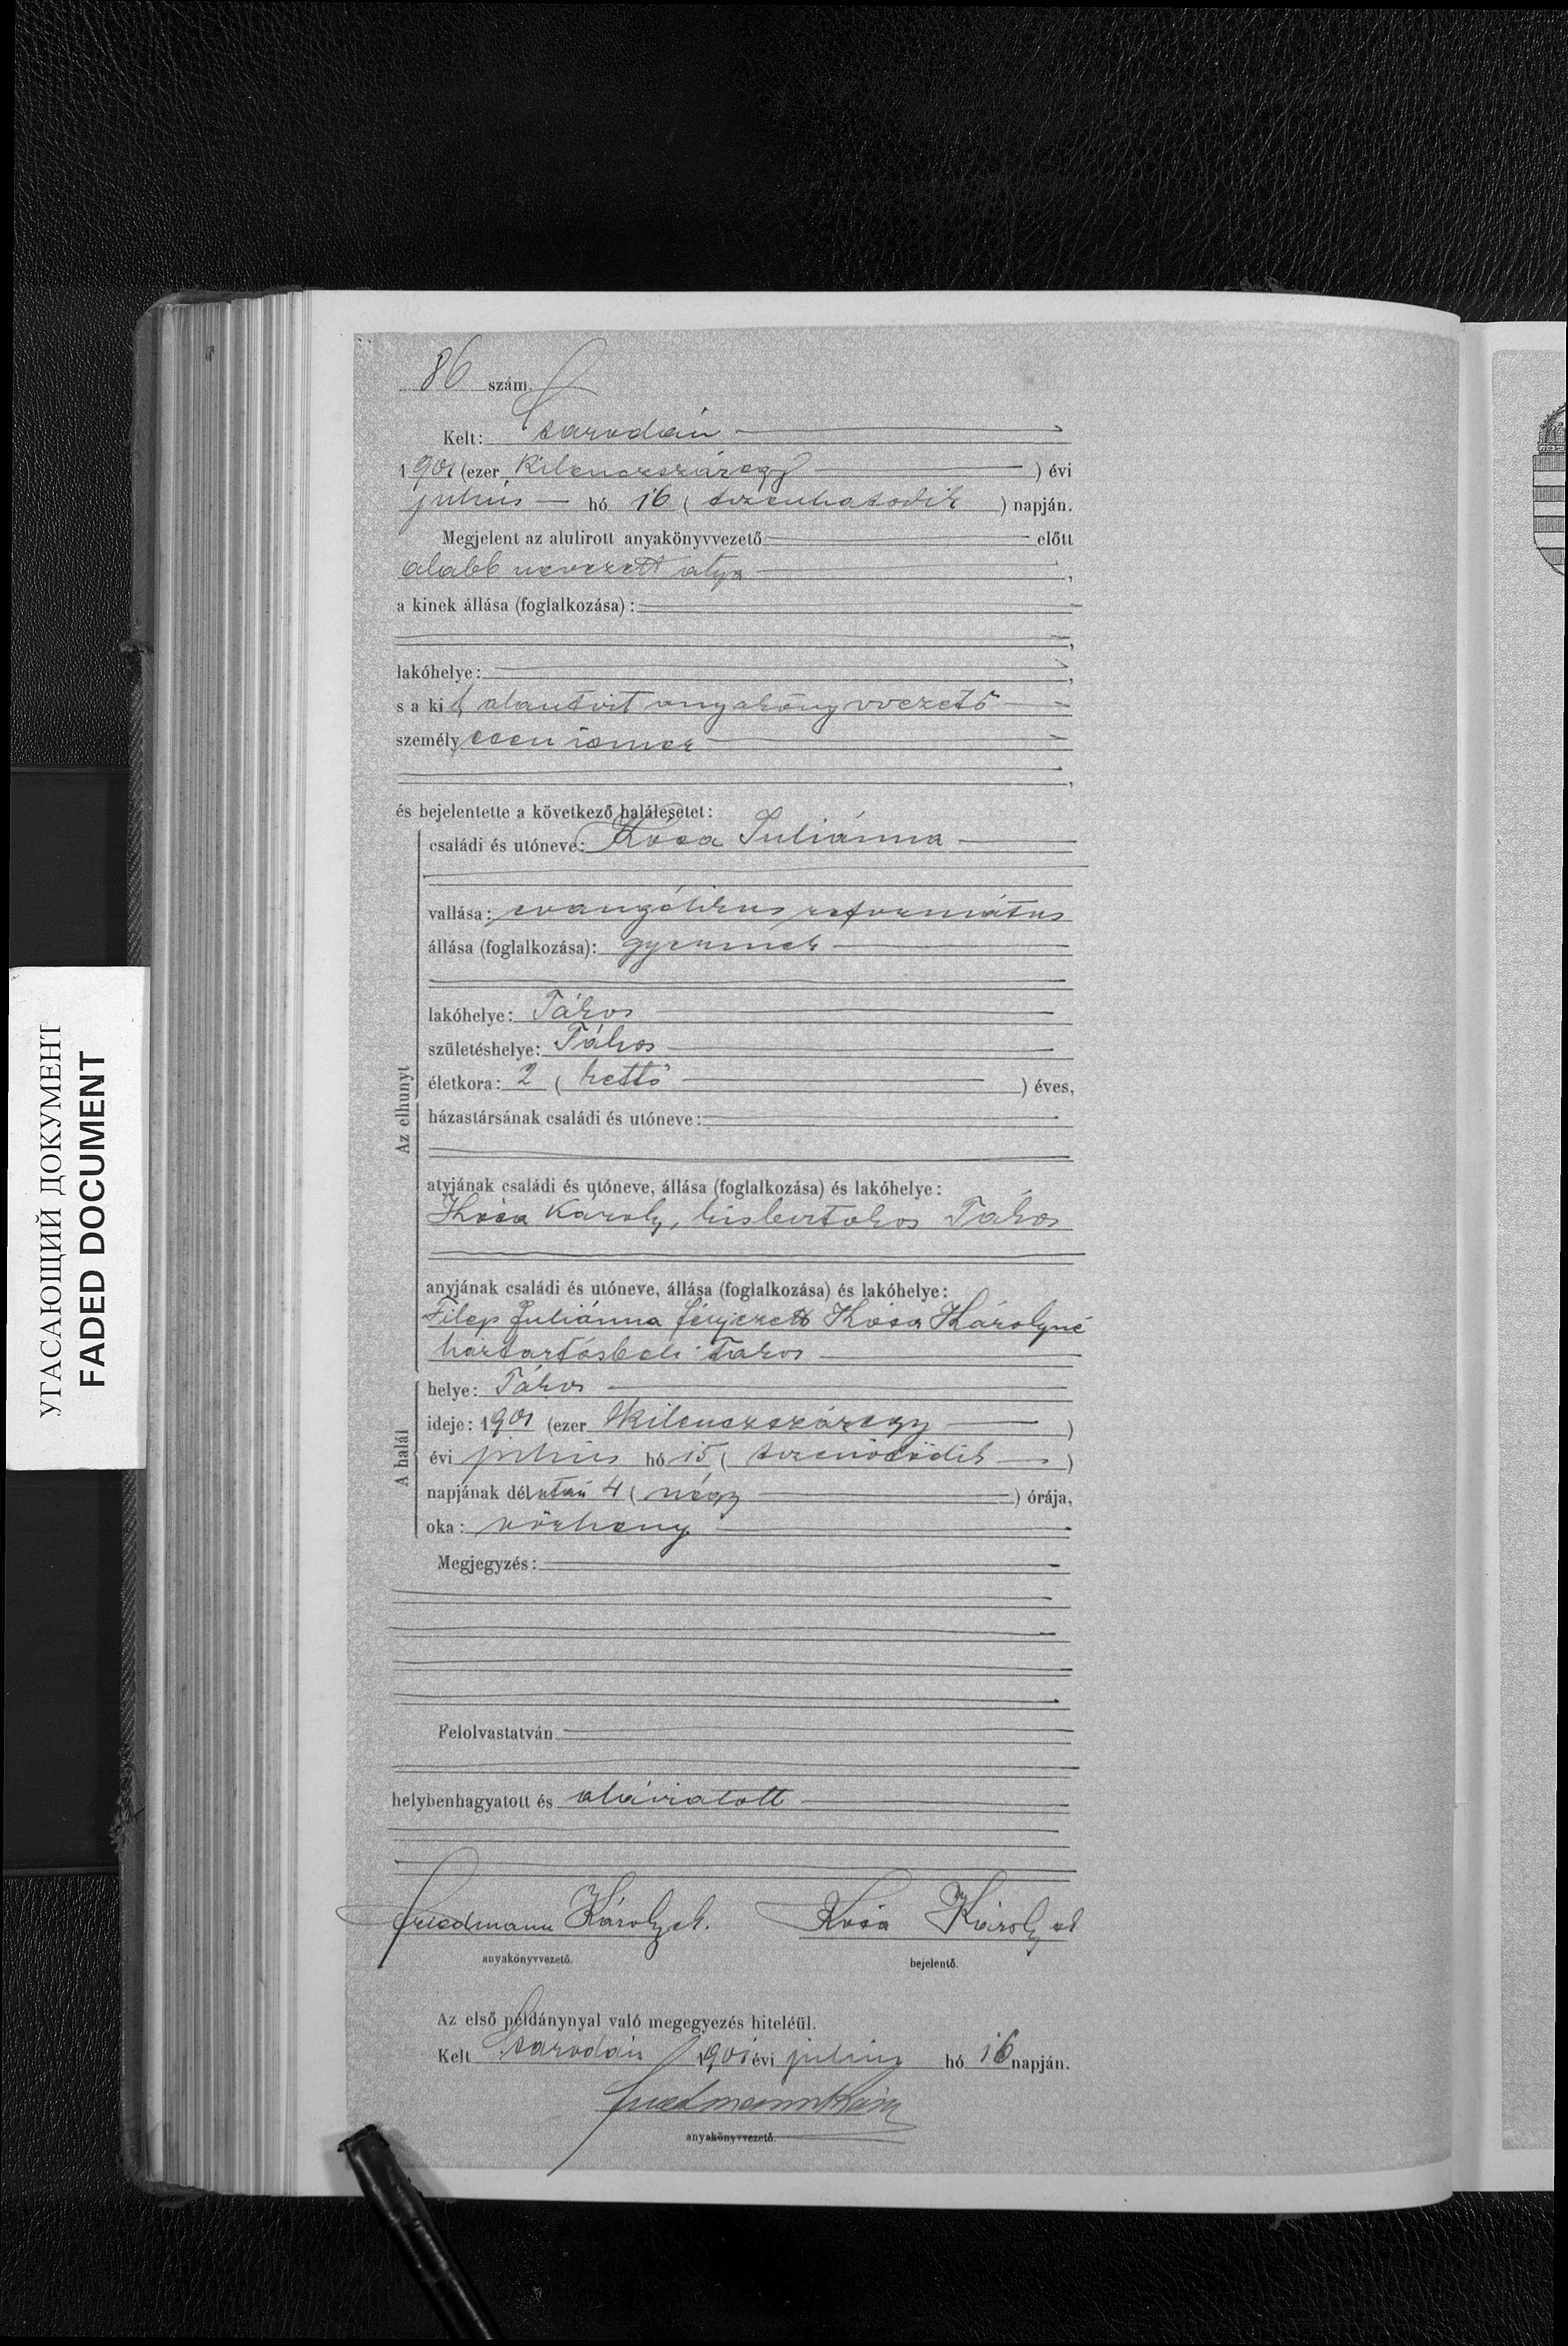 86 szám.
Kelt: Csarodán
1901 (ezer kilenczszázegy ) évi
julius hó 16 ( tizenhatodik ) napján.
Megjelent az alulirott anyakönyvvezető előtt
alább nevezett atya ,
a kinek állása (foglalkozása) :
,
lakóhelye : ,
s a kit alantirt anyakönyvvezető
személyesen ismer
,
és bejelentette a következő halálesetet :
családi és utóneve : Kósa Juliánna
vallása : evangélikus református
állása (foglalkozása) : gyermek
lakóhelye : Tákos
születéshelye : Tákos
életkora : 2 ( kettő ) éves,
házastársának családi és utóneve :
Az elhunyt
atyjának családi és utóneve, állása (foglalkozása) és lakóhelye :
Kósa Károly, kisbirtokos Tákos
anyjának családi és utóneve, állása (foglalkozása) és lakóhelye :
Filep Juliánna férjezett Kósa Károlyné
háztartásbeli Tákos
helye : Tákos
ideje : 1901 (ezer kilenczszázegy )
A halál
évi julius hó 15 ( tizenötödik )
napjának délután 4 ( négy ) órája,
oka : vörheny
Megjegyzés :
Felolvastatván
helybenhagyatott és aláiratott
Friedmann Károly sk. Kósa Károly sk
anyakönyvvezető. bejelentő.
Az első példánynyal való megegyezés hiteléül.
Kelt Csarodán 1901 évi julius hó 16 napján.
Friedmann Károly
anyakönyvvezető.
УГАСАЮЩИЙ ДОКУМЕНТ
FADED DOCUMENT